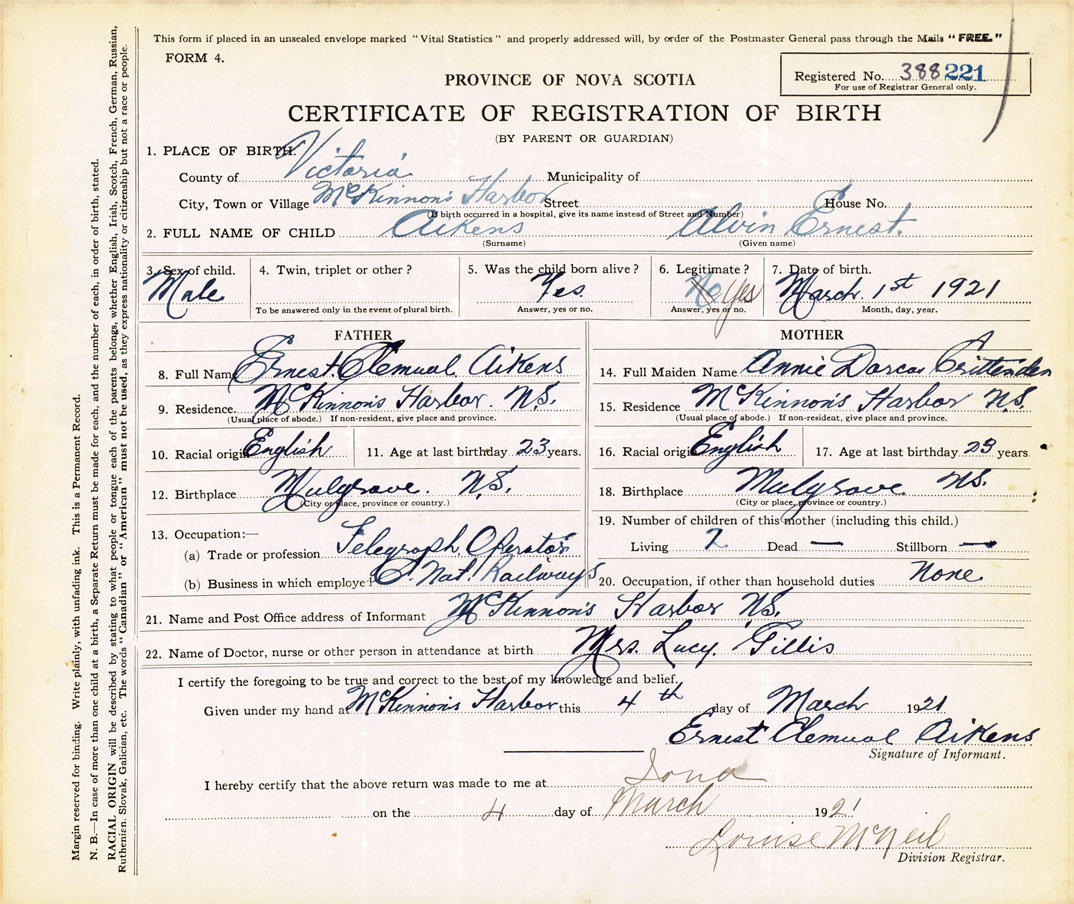 This form if placed in an unsealed envelope marked "Vital Statistics" and properly addressed will, by order of the Postmaster General pass through the Mails "FREE."
FORM 4.
Registered No. 388221
For use of Registrar General only.
PROVINCE OF NOVA SCOTIA
CERTIFICATE OF REGISTRATION OF BIRTH
(BY PARENT OR GUARDIAN)
1. PLACE OF BIRTH.
County of Victoria Municipality of
City, Town or Village McKinnon's Harbor Street House No.
(If birth occurred in a hospital, give its name instead of Street and Number)
2. FULL NAME OF CHILD Aikens Alvin Ernest.
(Surname) (Given name)
3. Sex of child. 4. Twin, triplet or other? 5. Was the child born alive? 6. Legitimate? 7. Date of birth.
Male Yes. No Yes March 1st 1921
To be answered only in the event of plural birth. Answer, yes or no. Answer, yes or no. Month, day, year.
FATHER MOTHER
8. Full Name Ernest Clemual Aikens 14. Full Maiden Name Annie Dorcas Crittenden
9. Residence. McKinnon's Harbor. N.S. 15. Residence McKinnon's Harbor N.S.
(Usual place of abode.) If non-resident, give place and province. (Usual place of abode.) If non-resident, give place and province.
10. Racial origin English 11. Age at last birthday 23 years. 16. Racial origin English 17. Age at last birthday 23 years.
12. Birthplace Mulgrave. N.S. 18. Birthplace Mulgrave N.S.
(City or place, province or country.) (City or place, province or country.)
13. Occupation:— 19. Number of children of this mother (including this child.)
(a) Trade or profession Telegraph Operator Living 2 Dead — Stillborn —
(b) Business in which employed C. Nat. Railways 20. Occupation, if other than household duties None
21. Name and Post Office address of Informant McKinnon's Harbor N.S.
22. Name of Doctor, nurse or other person in attendance at birth Mrs. Lucy Gillis
I certify the foregoing to be true and correct to the best of my knowledge and belief.
Given under my hand at McKinnon's Harbor this 4th day of March 1921
Ernest Clemual Aikens
Signature of Informant.
I hereby certify that the above return was made to me at Iona
on the 4 day of March 1921
Louise McNeil
Division Registrar.
Margin reserved for binding. Write plainly, with unfading ink. This is a Permanent Record.
N. B.—In case of more than one child at a birth, a Separate Return must be made for each, and the number of each, in order of birth, stated.
RACIAL ORIGIN will be described by stating to what people or tongue each of the parents belongs, whether English, Irish, Scotch, French, German, Russian,
Ruthenien, Slovak, Galician, etc. The words "Canadian" or "American" must not be used, as they express nationality or citizenship but not a race or people.